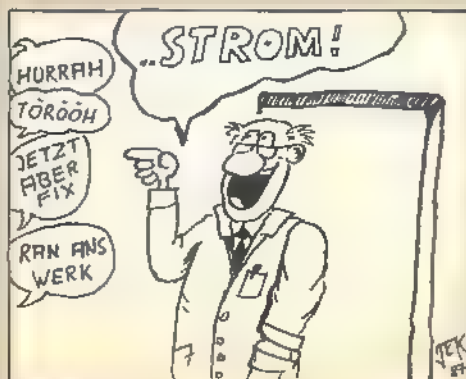 ..STROM!
HURRAH
TÖRÖÖH
JETZT
ABER
FIX
RAN ANS
WERK
JEK
87